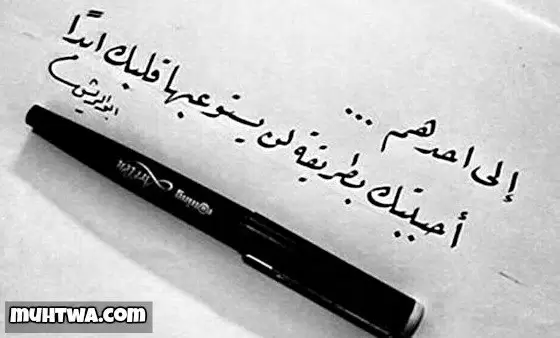 إلى احدهم ...
أحببتك بطريقة لن يستوعبها قلبك ابدًا
muhtwa.com